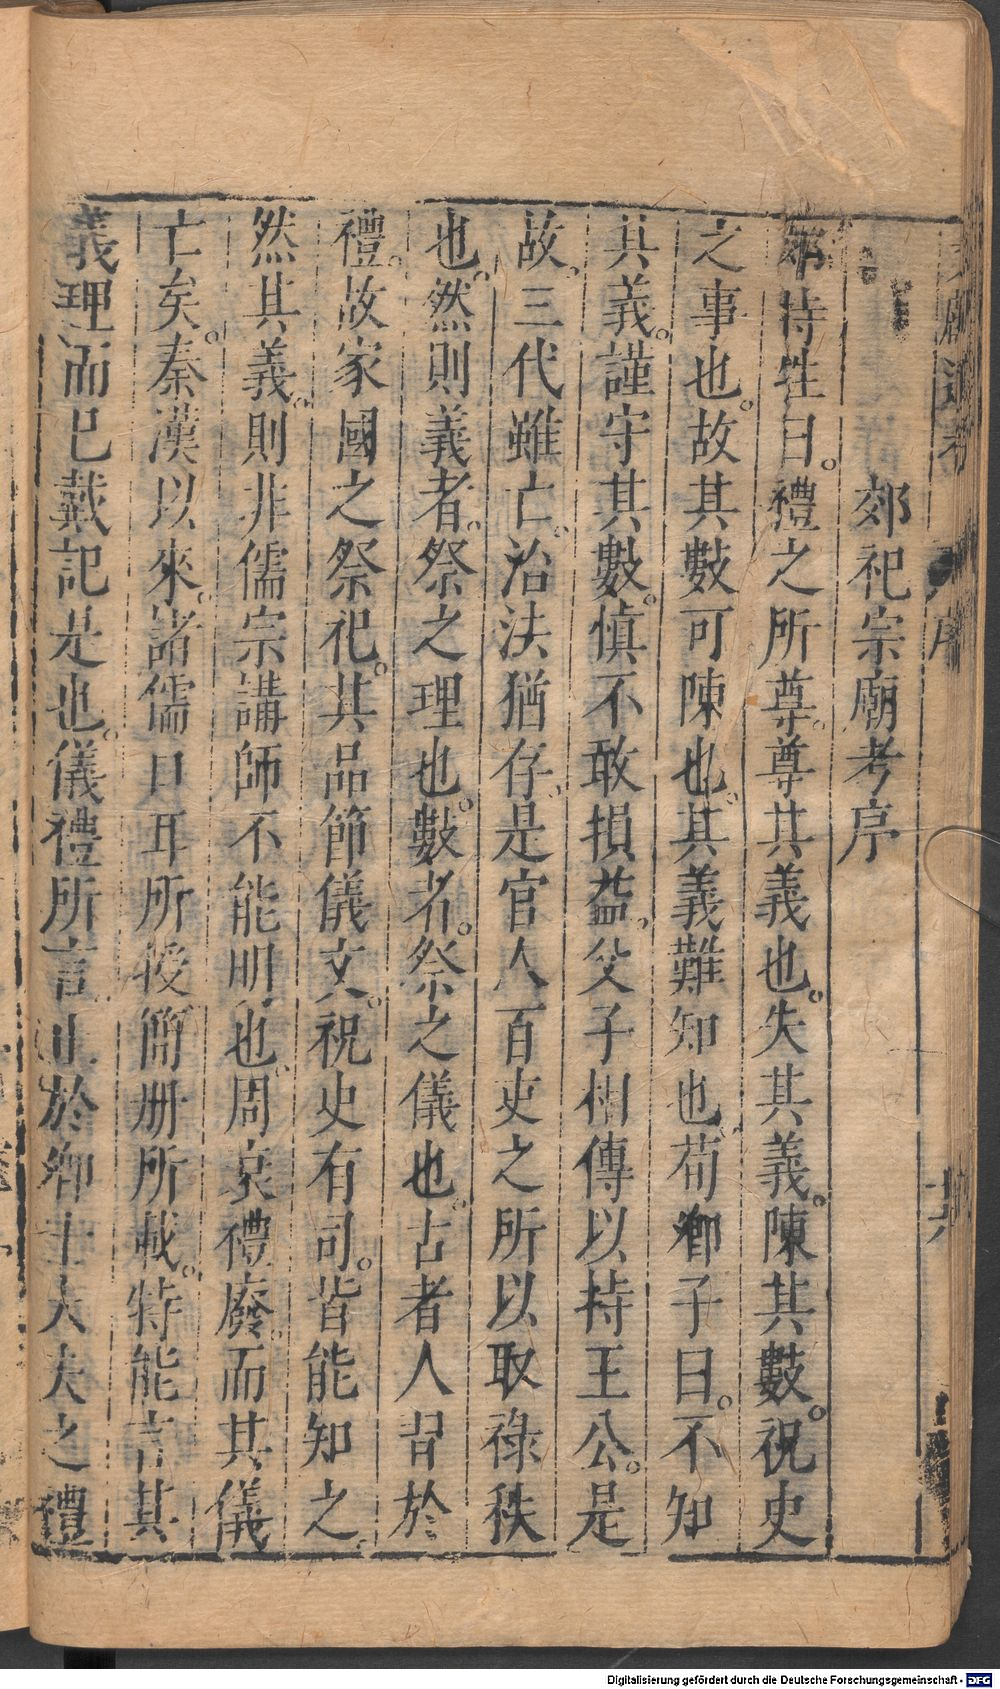 郊祀宗廟考序
郊特牲曰。禮之所尊。尊其義也。失其義。陳其數。祝史
之事也。故其數可陳也。其義難知也。荀卿子曰。不知
其義。謹守其數。慎不敢損益。父子相傳以持王公。是
故。三代雖亡。治法猶存。是官人百吏之所以取祿秩
也。然則義者。祭之理也。數者。祭之儀也。古者人習於
禮。故家國之祭祀。其品節儀文。祝史有司。皆能知之
然其義。則非儒宗講師不能明也。周衰禮廢。而其儀
亡矣。秦漢以來。諸儒口耳所授簡册所載。特能言其
義理而已戴記是也。儀禮所言止於卿士大夫之禮
Digitalisierung gefördert durch die Deutsche Forschungsgemeinschaft - DFG